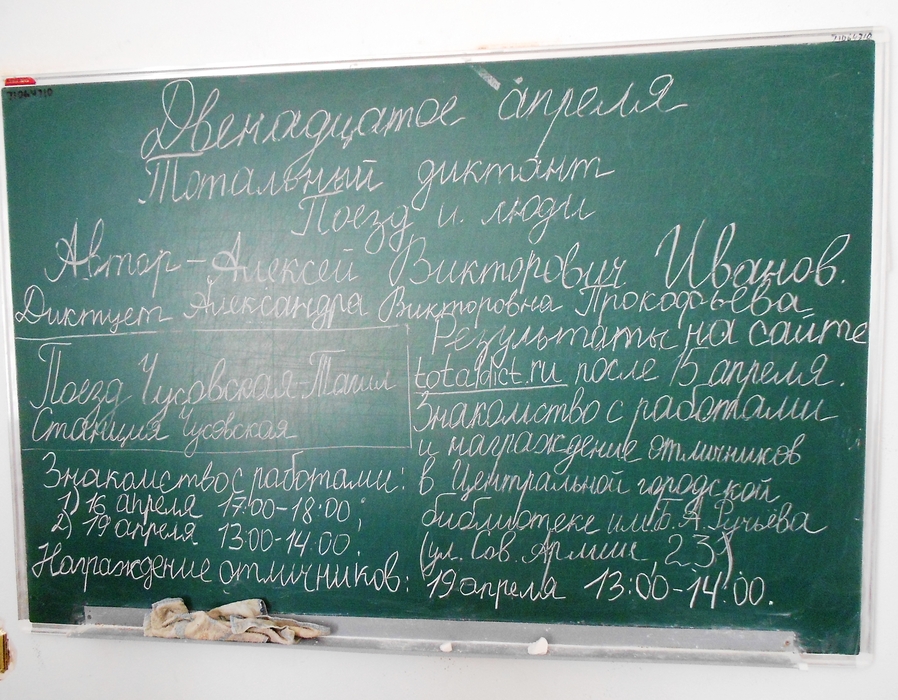 71064710
71064710
Двенадцатое апреля
Тотальный диктант
Поезд и люди
Автор - Алексей Викторович Иванов.
Диктует Александра Викторовна Прокофьева
Поезд Чусовская-Тагил
Станция Чусовская
Знакомство с работами:
1) 16 апреля 17:00-18:00;
2) 19 апреля 13:00-14:00.
Награждение отличников:
Результаты на сайте
totaldict.ru после 15 апреля.
Знакомство с работами
и награждение отличников
в Центральной городской
библиотеке им. Б. А. Ручьёва
(ул. Сов. Армии, 23)
19 апреля 13:00-14:00.